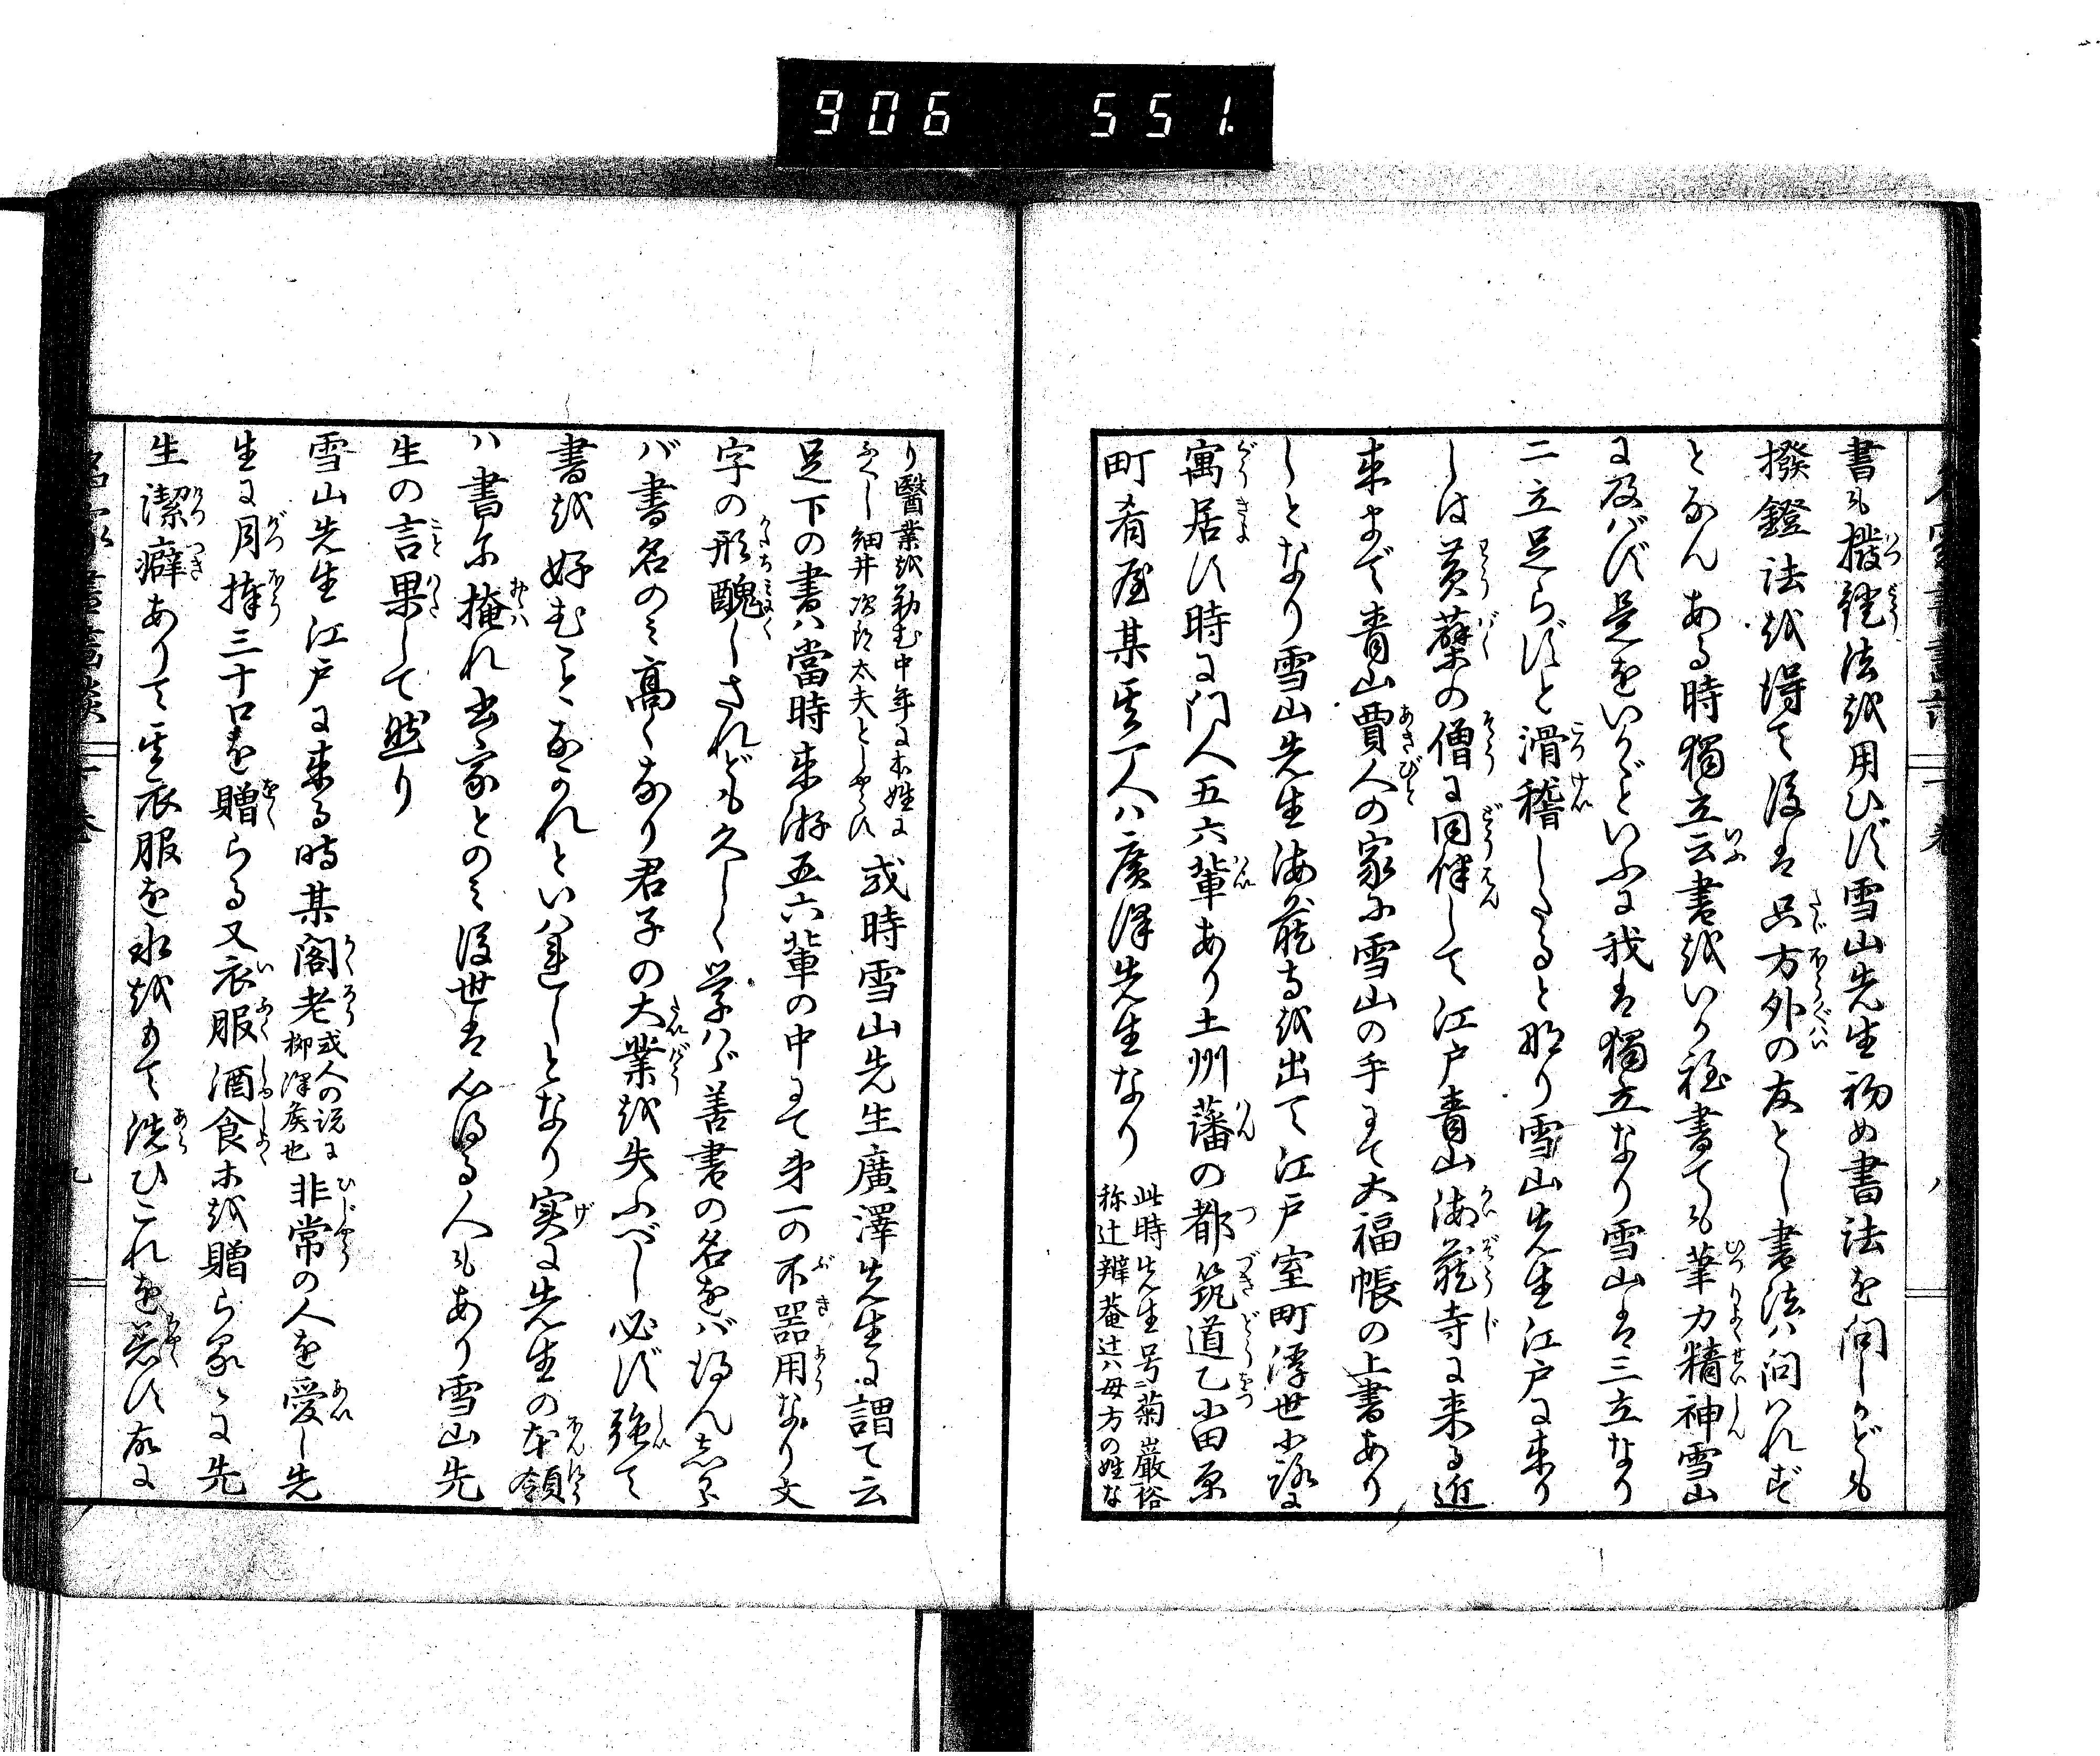 906 551.
書も撥鐙法越用ひず雪山先生初め書法を問しかども
撥鐙法越得て後は只方外の友とし書法ハ問ハれず
となんある時獨立云書越いか程書ても筆力精神雪山
に及バず是をいかどいふに我は獨立なり雪山は三立なり
二立足らずと滑稽したると那り雪山先生江戸に来り
しは黄檗の僧に同伴して江戸青山海蔵寺に来る近
来まで青山賈人の家に雪山の手にて大福帳の上書あり
しとなり雪山先生海蔵寺越出て江戸室町浮世小路に
寓居す時に門人五六輩あり土州藩の都筑道乙小田原
町肴屋某其一人ハ廣澤先生なり 此時先生号菊巌俗
称辻辨菴辻ハ母方の姓な
り醫業越勤む中年に本姓に
ふくし細井次郎太夫としやうす 或時雪山先生廣澤先生に謂て云
足下の書ハ當時来游五六輩の中にて第一の不器用なり文
字の形醜しされども久しく学ハゞ善書の名をバ得ん志から
バ書名のミ高くなり君子の大業越失ふべし必ず強て
書越好むことなかれといハれしとなり実に先生の本領
ハ書に掩れ書家とのミ後世は心得る人もあり雪山先
生の言果して然り
雪山先生江戸に来る時某閣老 或人の説に
柳澤侯也 非常の人を愛し先
生に月捧三十口を贈らる又衣服酒食等越贈らるゝに先
生潔癖ありて其衣服を水越もて洗ひこれを着す故に